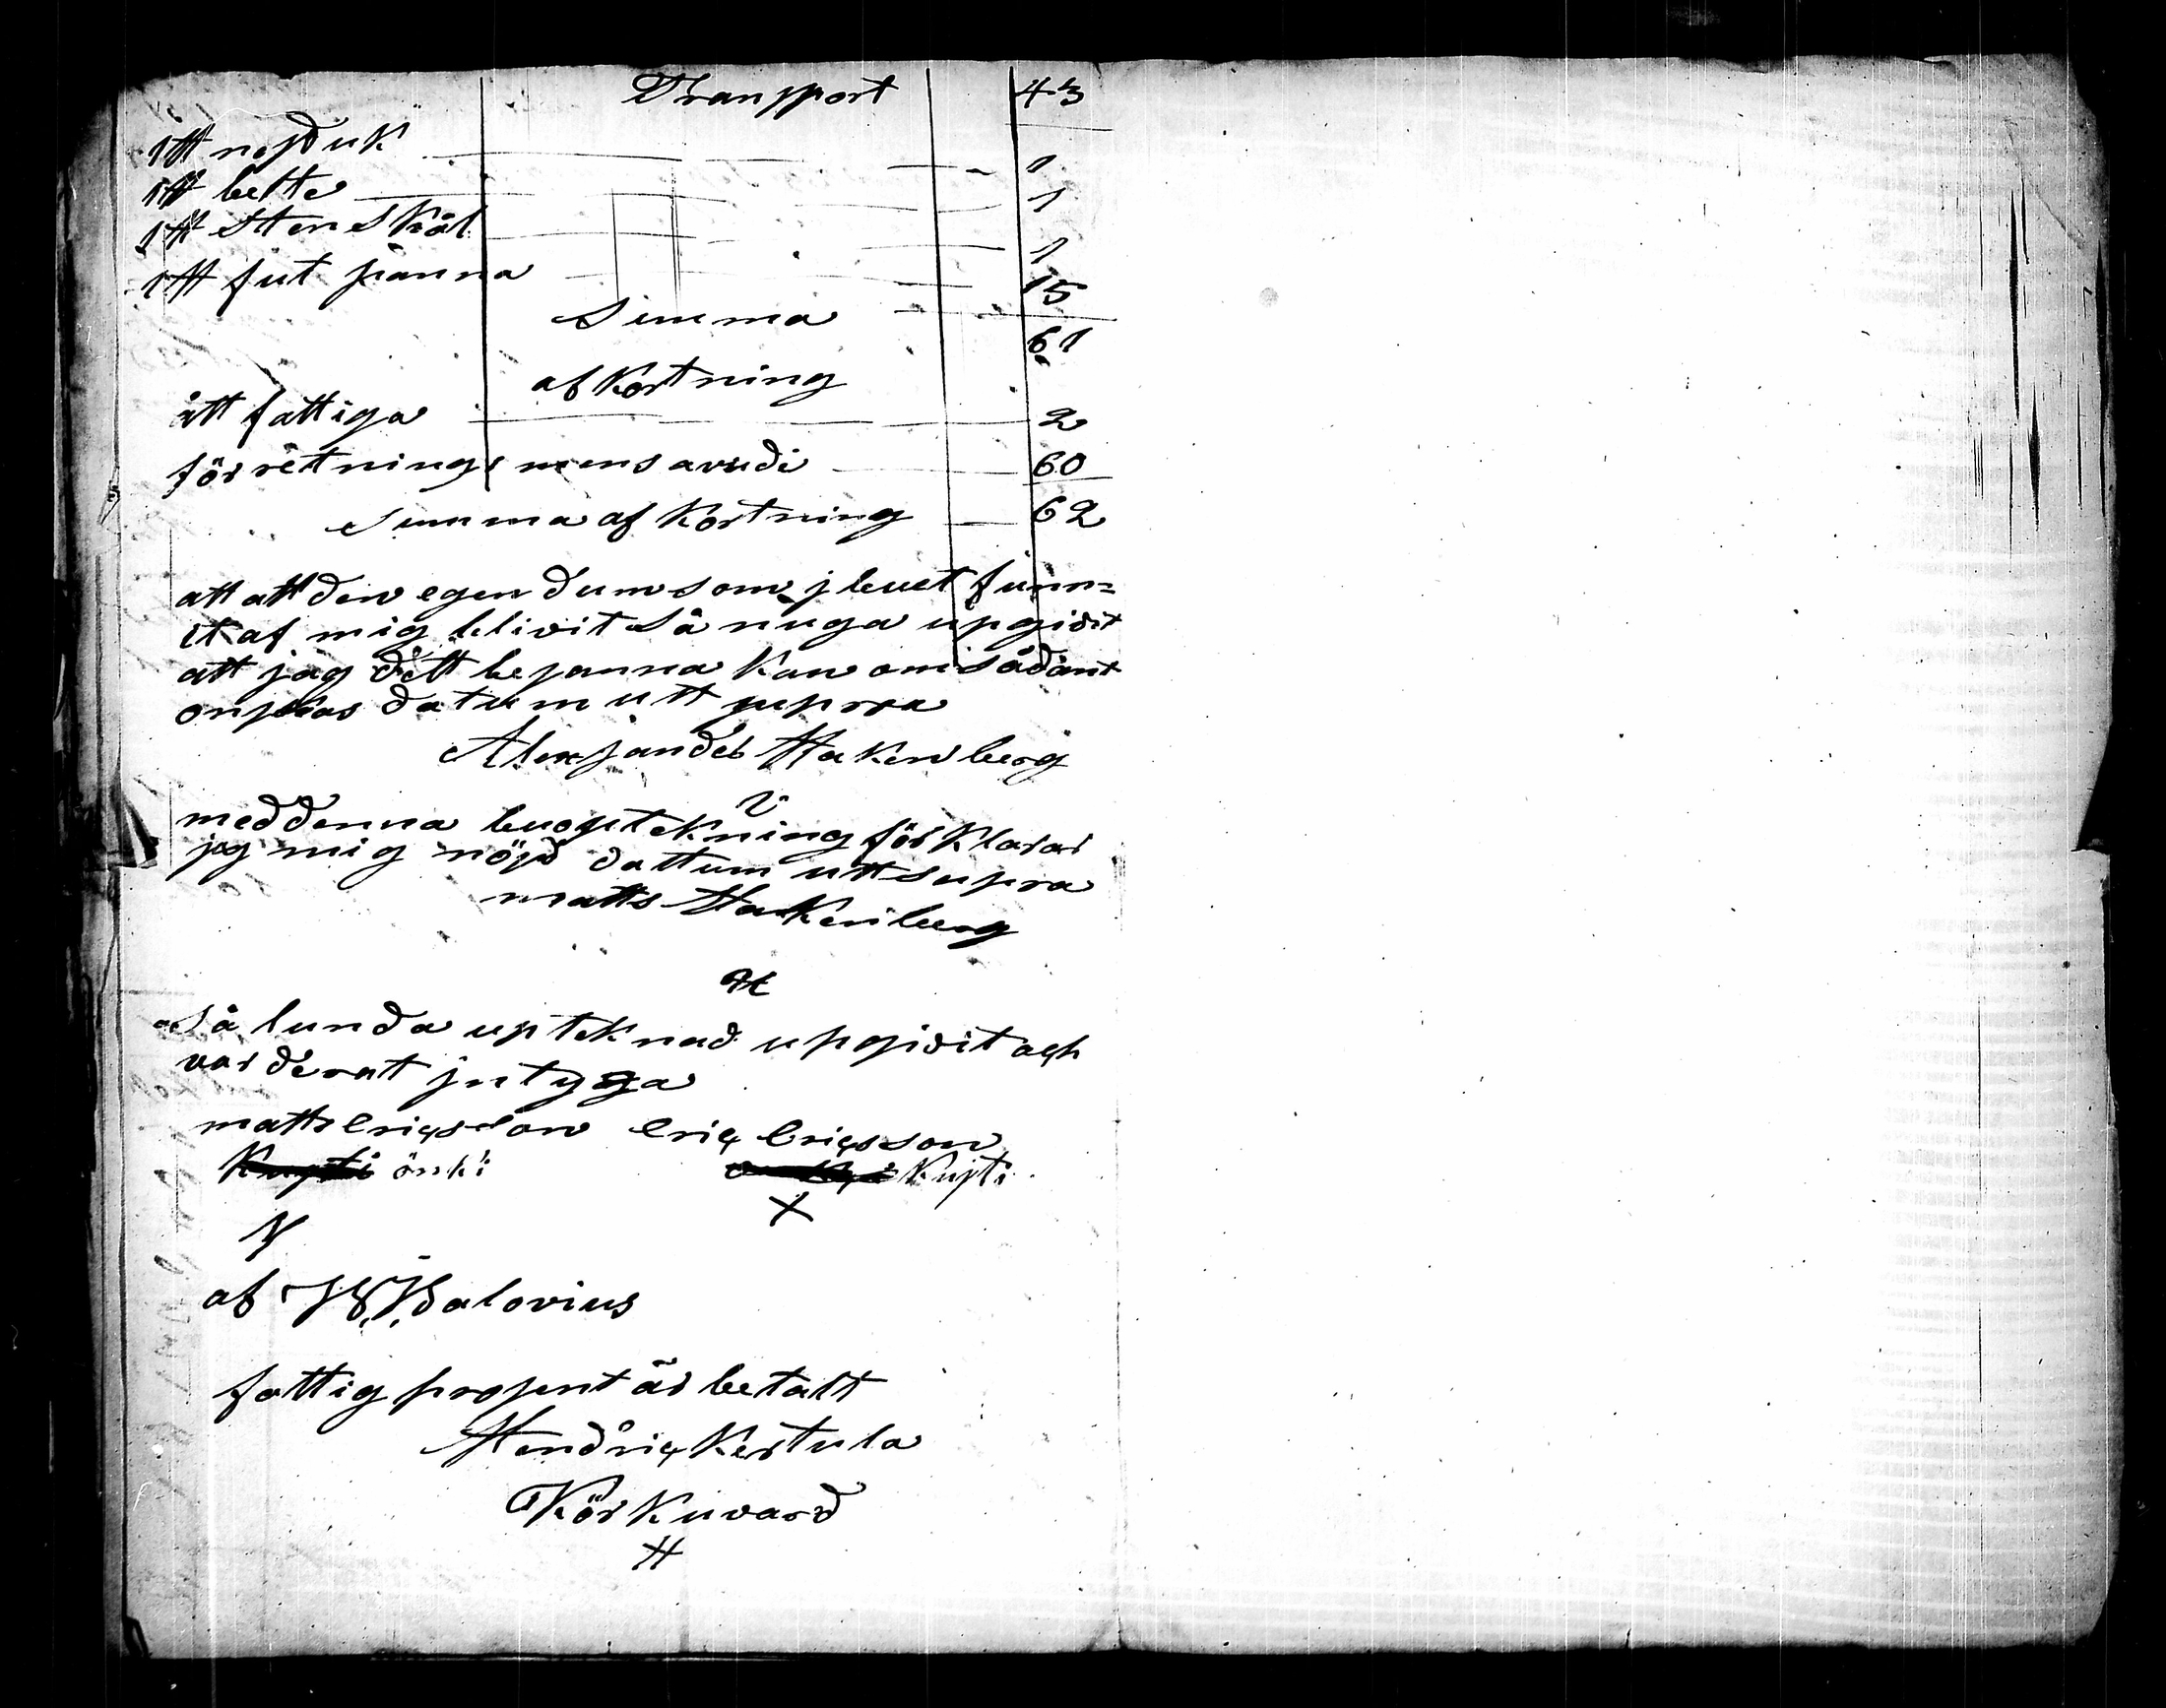 Transport 43
1 tt nesduk 1
1 tt belte 1
1 tt Sten Skål 1
1 tt fut panna 15
Summa 61
af Kortning
ått fattiga 2
för retnings mens arvudi 60
Summa af Kortning 62
att att den egendum som j buet funn=
it af mig blivit så nuga upgivit
att jag dett bejanna Kan om sådant
onskas datum utt supra
Alexsander Hakenberg
med denna buoptekning förklarar
jag mig nöjd dattum utt supra
matts Hakenberg
Så lunda up teknad upgivit och
varderat intyga
matts ericsson eric ericsson
Kupti önki Kupti
X
af W. Walovius
fattig prosent är betalt
Hendric Kertula
Körkuvard